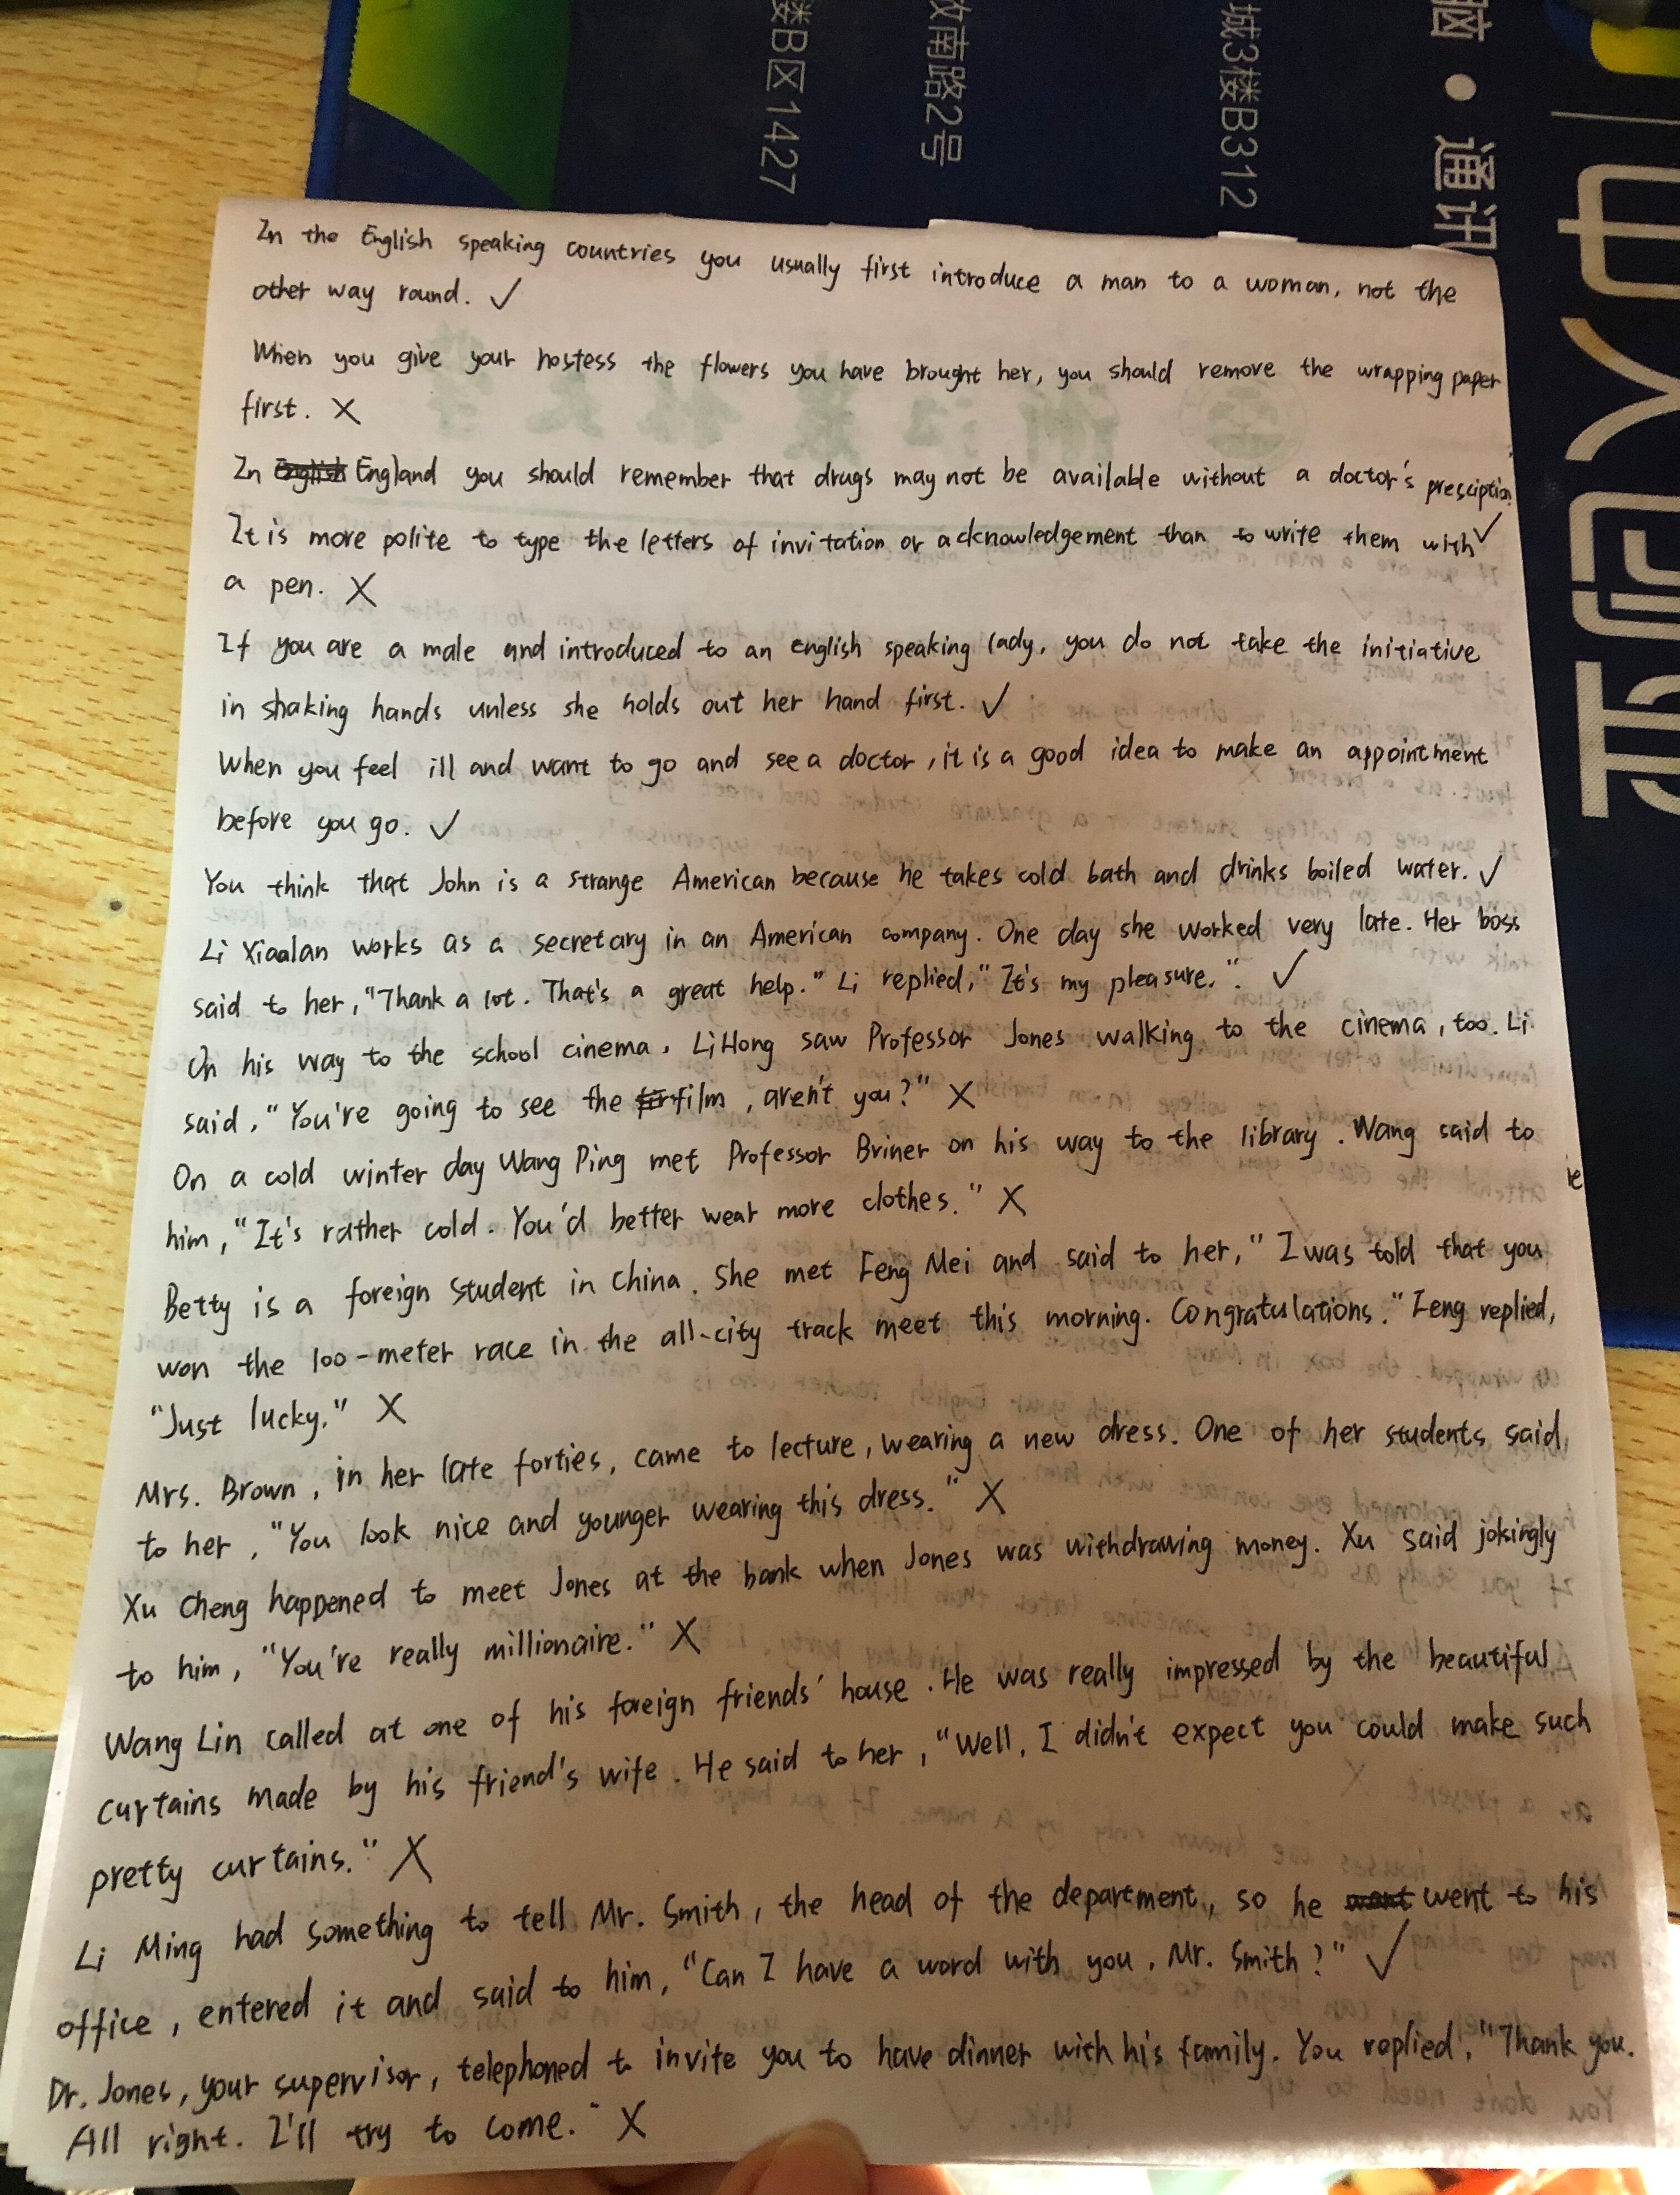 楼B区1427
政南路2号
城3楼B312
脑·通讯
In the English speaking countries you usually first introduce a man to a woman, not the
other way round. ✓
When you give your hostess the flowers you have brought her, you should remove the wrapping paper
first. X
In England you should remember that drugs may not be available without a doctor's presciption
It is more polite to type the letters of invitation or acknowledgement than to write them with ✓
a pen. X
If you are a male and introduced to an english speaking lady, you do not take the initiative
in shaking hands unless she holds out her hand first. ✓
When you feel ill and want to go and see a doctor, it is a good idea to make an appointment
before you go. ✓
You think that John is a strange American because he takes cold bath and drinks boiled water. ✓
Li Xiaolan works as a secretary in an American company. One day she worked very late. Her boss
said to her, "Thank a lot. That's a great help." Li replied, "It's my pleasure.". ✓
On his way to the school cinema, Li Hong saw Professor Jones walking to the cinema, too. Li
said, "You're going to see the film, aren't you?" X
On a cold winter day Wang Ping met Professor Briner on his way to the library. Wang said to
him, "It's rather cold. You'd better wear more clothes." X
Betty is a foreign student in China. She met Feng Mei and said to her, "I was told that you
won the 100-meter race in the all-city track meet this morning. Congratulations." Feng replied,
"Just lucky." X
Mrs. Brown, in her late forties, came to lecture, wearing a new dress. One of her students said
to her, "You look nice and younger wearing this dress." X
Xu Cheng happened to meet Jones at the bank when Jones was withdrawing money. Xu said jokingly
to him, "You're really millionaire." X
Wang Lin called at one of his foreign friends' house. He was really impressed by the beautiful
curtains made by his friend's wife. He said to her, "Well, I didn't expect you could make such
pretty curtains." X
Li Ming had something to tell Mr. Smith, the head of the department, so he went to his
office, entered it and said to him, "Can I have a word with you, Mr. Smith?" ✓
Dr. Jones, your supervisor, telephoned to invite you to have dinner with his family. You replied, "Thank you.
All right. I'll try to come." X